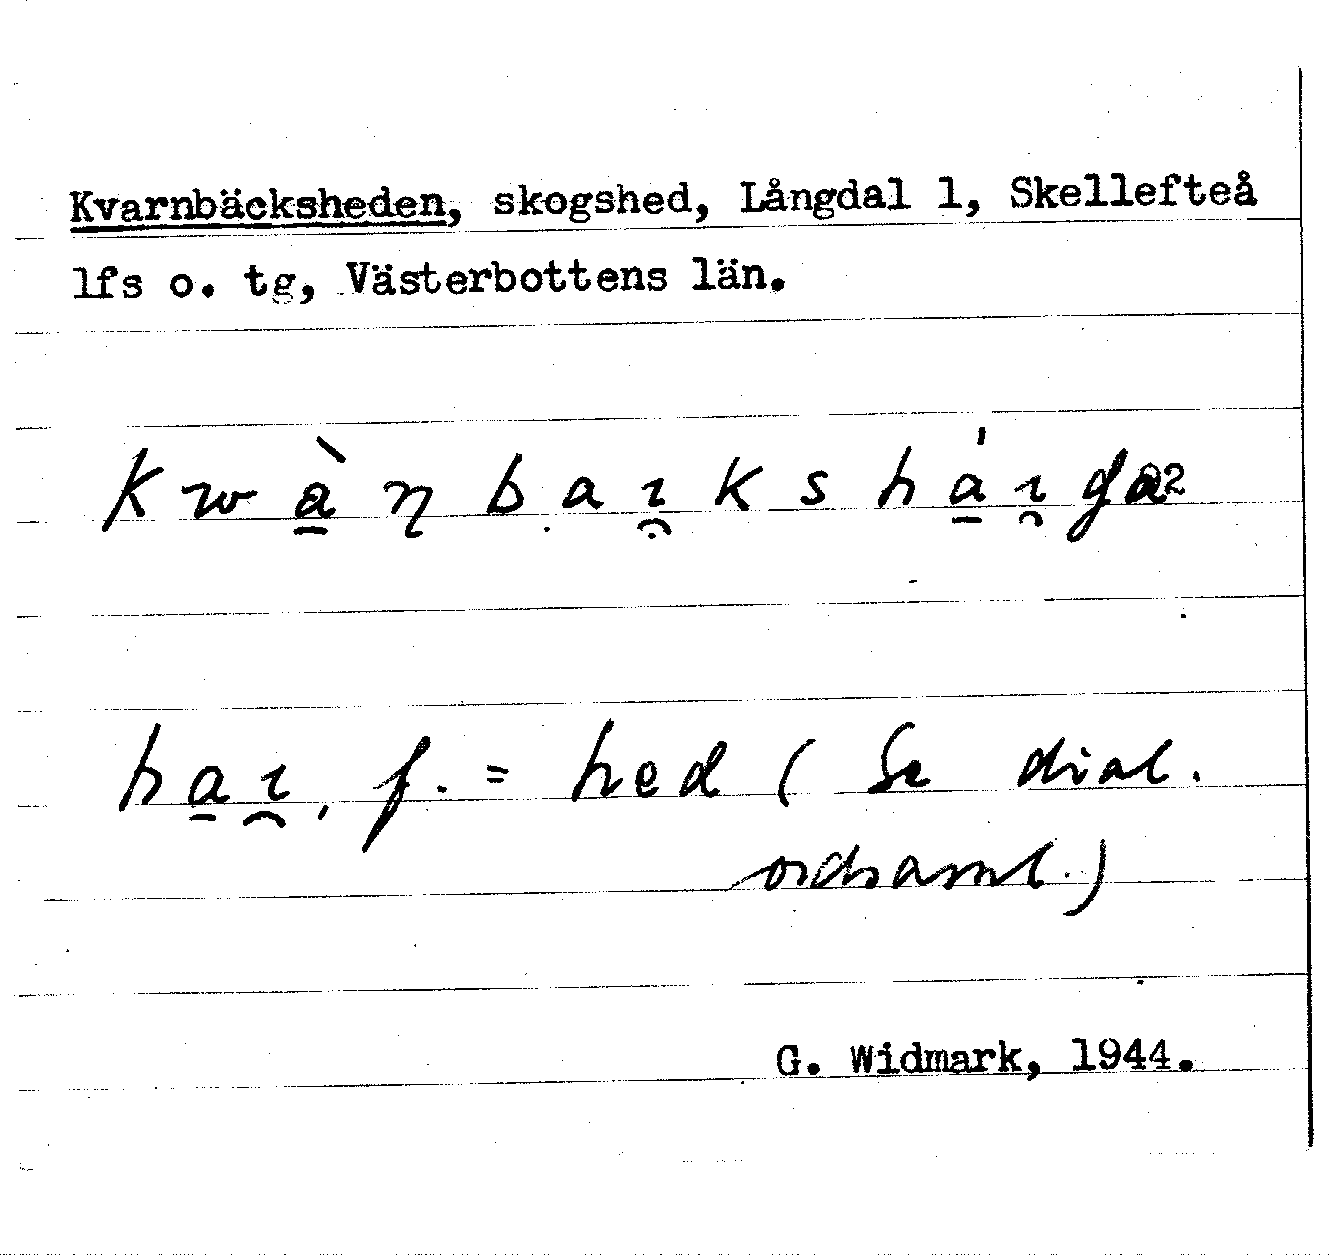 Kvarnbäcksheden, skogshed, Långdal 1, Skellefteå
lfs o. tg, Västerbottens län.
ha̠ɩ̯, f. = hed ( Se dial.
ordsaml.)
G. Widmark, 1944.